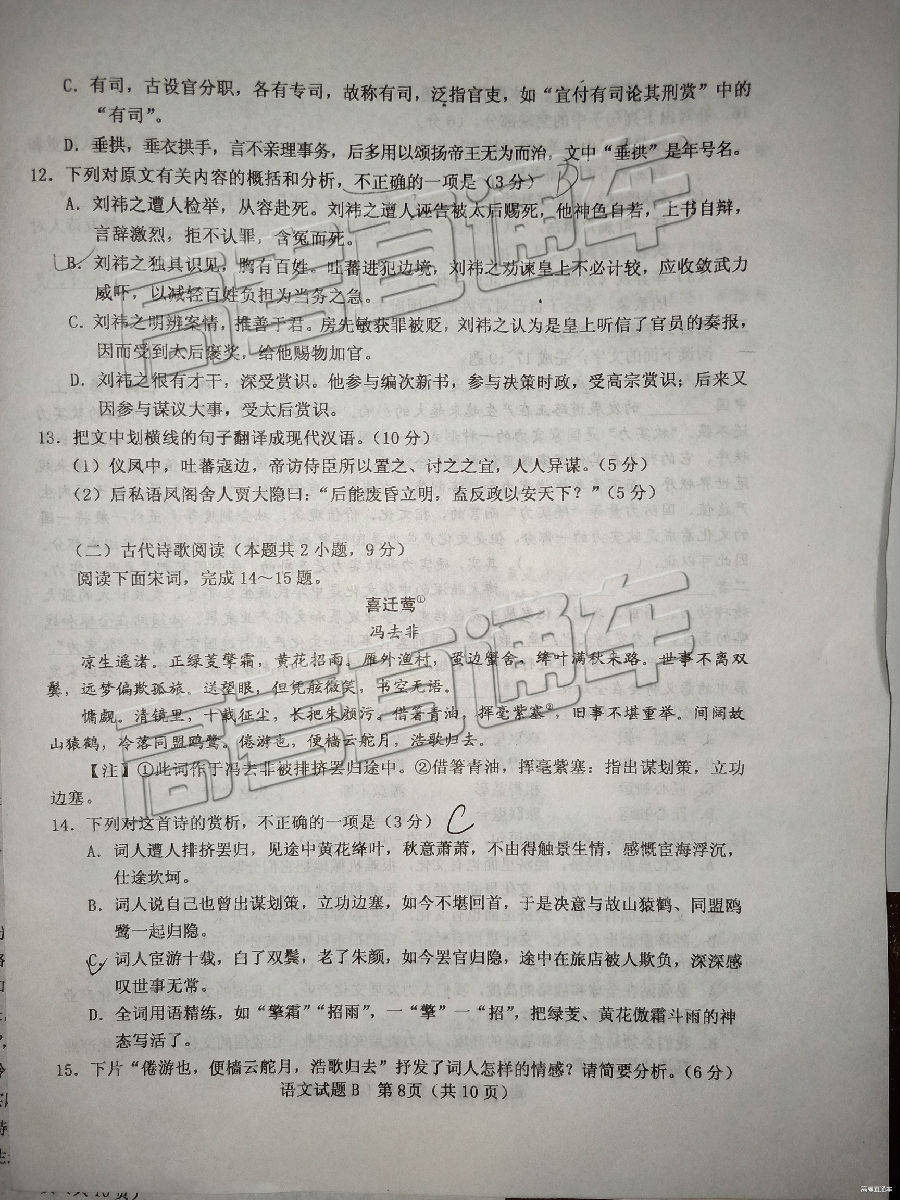 C．有司，古设官分职，各有专司，故称有司，泛指官吏，如“宜付有司论其刑赏”中的
“有司”。
D．垂拱，垂衣拱手，言不亲理事务，后多用以颂扬帝王无为而治，文中“垂拱”是年号名。
12．下列对原文有关内容的概括和分析，不正确的一项是（3分）
A．刘祎之遭人检举，从容赴死。刘祎之遭人诬告被太后赐死，他神色自若，上书自辩，
言辞激烈，拒不认罪，含冤而死。
B．刘祎之独具识见，胸有百姓。吐蕃进犯边境，刘祎之劝谏皇上不必计较，应收敛武力
威吓，以减轻百姓负担为当务之急。
C．刘祎之明辨案情，推善于君。房先敏获罪被贬，刘祎之认为是皇上听信了官员的奏报，
因而受到太后褒奖，给他赐物加官。
D．刘祎之很有才干，深受赏识。他参与编次新书，参与决策时政，受高宗赏识；后来又
因参与谋议大事，受太后赏识。
13．把文中划横线的句子翻译成现代汉语。（10分）
（1）仪凤中，吐蕃寇边，帝访侍臣所以置之、讨之之宜，人人异谋。（5分）
（2）后私语凤阁舍人贾大隐曰：“后能废昏立明，盍反政以安天下？”（5分）
（二）古代诗歌阅读（本题共2小题，9分）
阅读下面宋词，完成14～15题。
喜迁莺①
冯去非
凉生遥渚。正绿芰擎霜，黄花招雨。雁外渔村，蛩边蟹舍，绛叶满秋来路。世事不离双
鬓，远梦偏欺孤旅。送望眼，但凭舷微笑，书空无语。
慵觑。清镜里，十载征尘，长把朱颜污。借箸青油，挥毫紫塞②，旧事不堪重举。间阔故
山猿鹤，冷落同盟鸥鹭。倦游也，便樯云舵月，浩歌归去。
【注】①此词作于冯去非被排挤罢归途中。②借箸青油，挥毫紫塞：指出谋划策，立功
边塞。
14．下列对这首诗的赏析，不正确的一项是（3分） C
A．词人遭人排挤罢归，见途中黄花绛叶，秋意萧萧，不由得触景生情，感慨宦海浮沉，
仕途坎坷。
B．词人说自己也曾出谋划策，立功边塞，如今不堪回首，于是决意与故山猿鹤、同盟鸥
鹭一起归隐。
C．词人宦游十载，白了双鬓，老了朱颜，如今罢官归隐，途中在旅店被人欺负，深深感
叹世事无常。
D．全词用语精练，如“擎霜”“招雨”，一“擎”一“招”，把绿芰、黄花傲霜斗雨的神
态写活了。
15．下片“倦游也，便樯云舵月，浩歌归去”抒发了词人怎样的情感？请简要分析。（6分）
语文试题B 第8页（共10页）
高考直通车
高考直通车
高考直通车